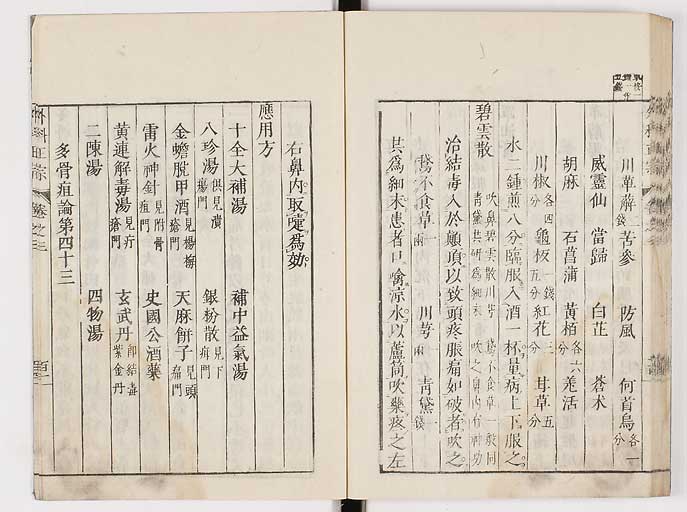 川萆薢二錢 苦參 防風 何首烏各一分
威靈仙 當歸 白芷 蒼朮
胡麻 石菖蒲 黃栢各六分 羌活
川椒各四分 龜板一錢五分 紅花三分 甘草五分
水二鍾煎八分臨服入酒一杯量病上下服之
碧雲散 吹鼻碧雲散川芎 鵞不食草一般同 青黛共研爲細末 吹之鼻內有神功
治結毒入於顚頂以致頭疼脹痛如破者吹之
鵞不食草一兩 川芎一兩 青黛一錢
其爲細末患者口噙凉水以蘆筒吹藥疼之左
右鼻內取嚏爲効
應用方
十全大補湯 補中益氣湯
八珍湯俱見潰瘍門 銀粉散見下疳門
金蟾脫甲酒見楊梅瘡門 天麻餅子見頭痛門
雷火神針見附骨疽門 史國公酒藥
黃連解毒湯見疔瘡門 玄武丹即結毒紫金丹
二陳湯 四物湯
多骨疽論第四十三
外科正宗 卷之三